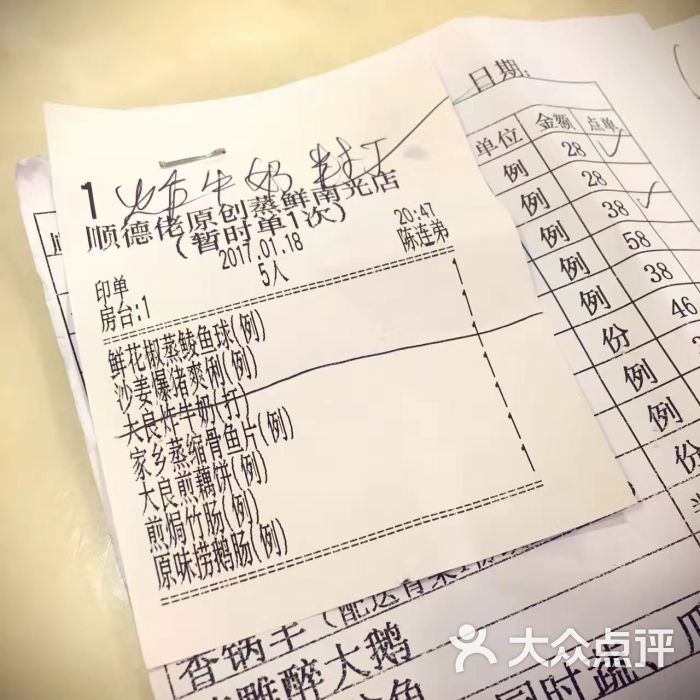 日期:
单位 金额 点单
例 28
例 28
例 38
例 58
例 38
份 46
例
例
份
例
炸牛奶 半打
1
顺德佬原创蒸鲜南光店
(暂时单1次)
2017.01.18 20:47
印单 5人 陈连弟
房台:1
鲜花椒蒸鲮鱼球(例) 1
沙姜爆猪爽俐(例) 1
大良炸牛奶(打) 1
家乡蒸缩骨鱼片(例) 1
大良煎藕饼(例) 1
煎焗竹肠(例) 1
原味捞鹅肠(例) 1
雕醉大鹅
大众点评